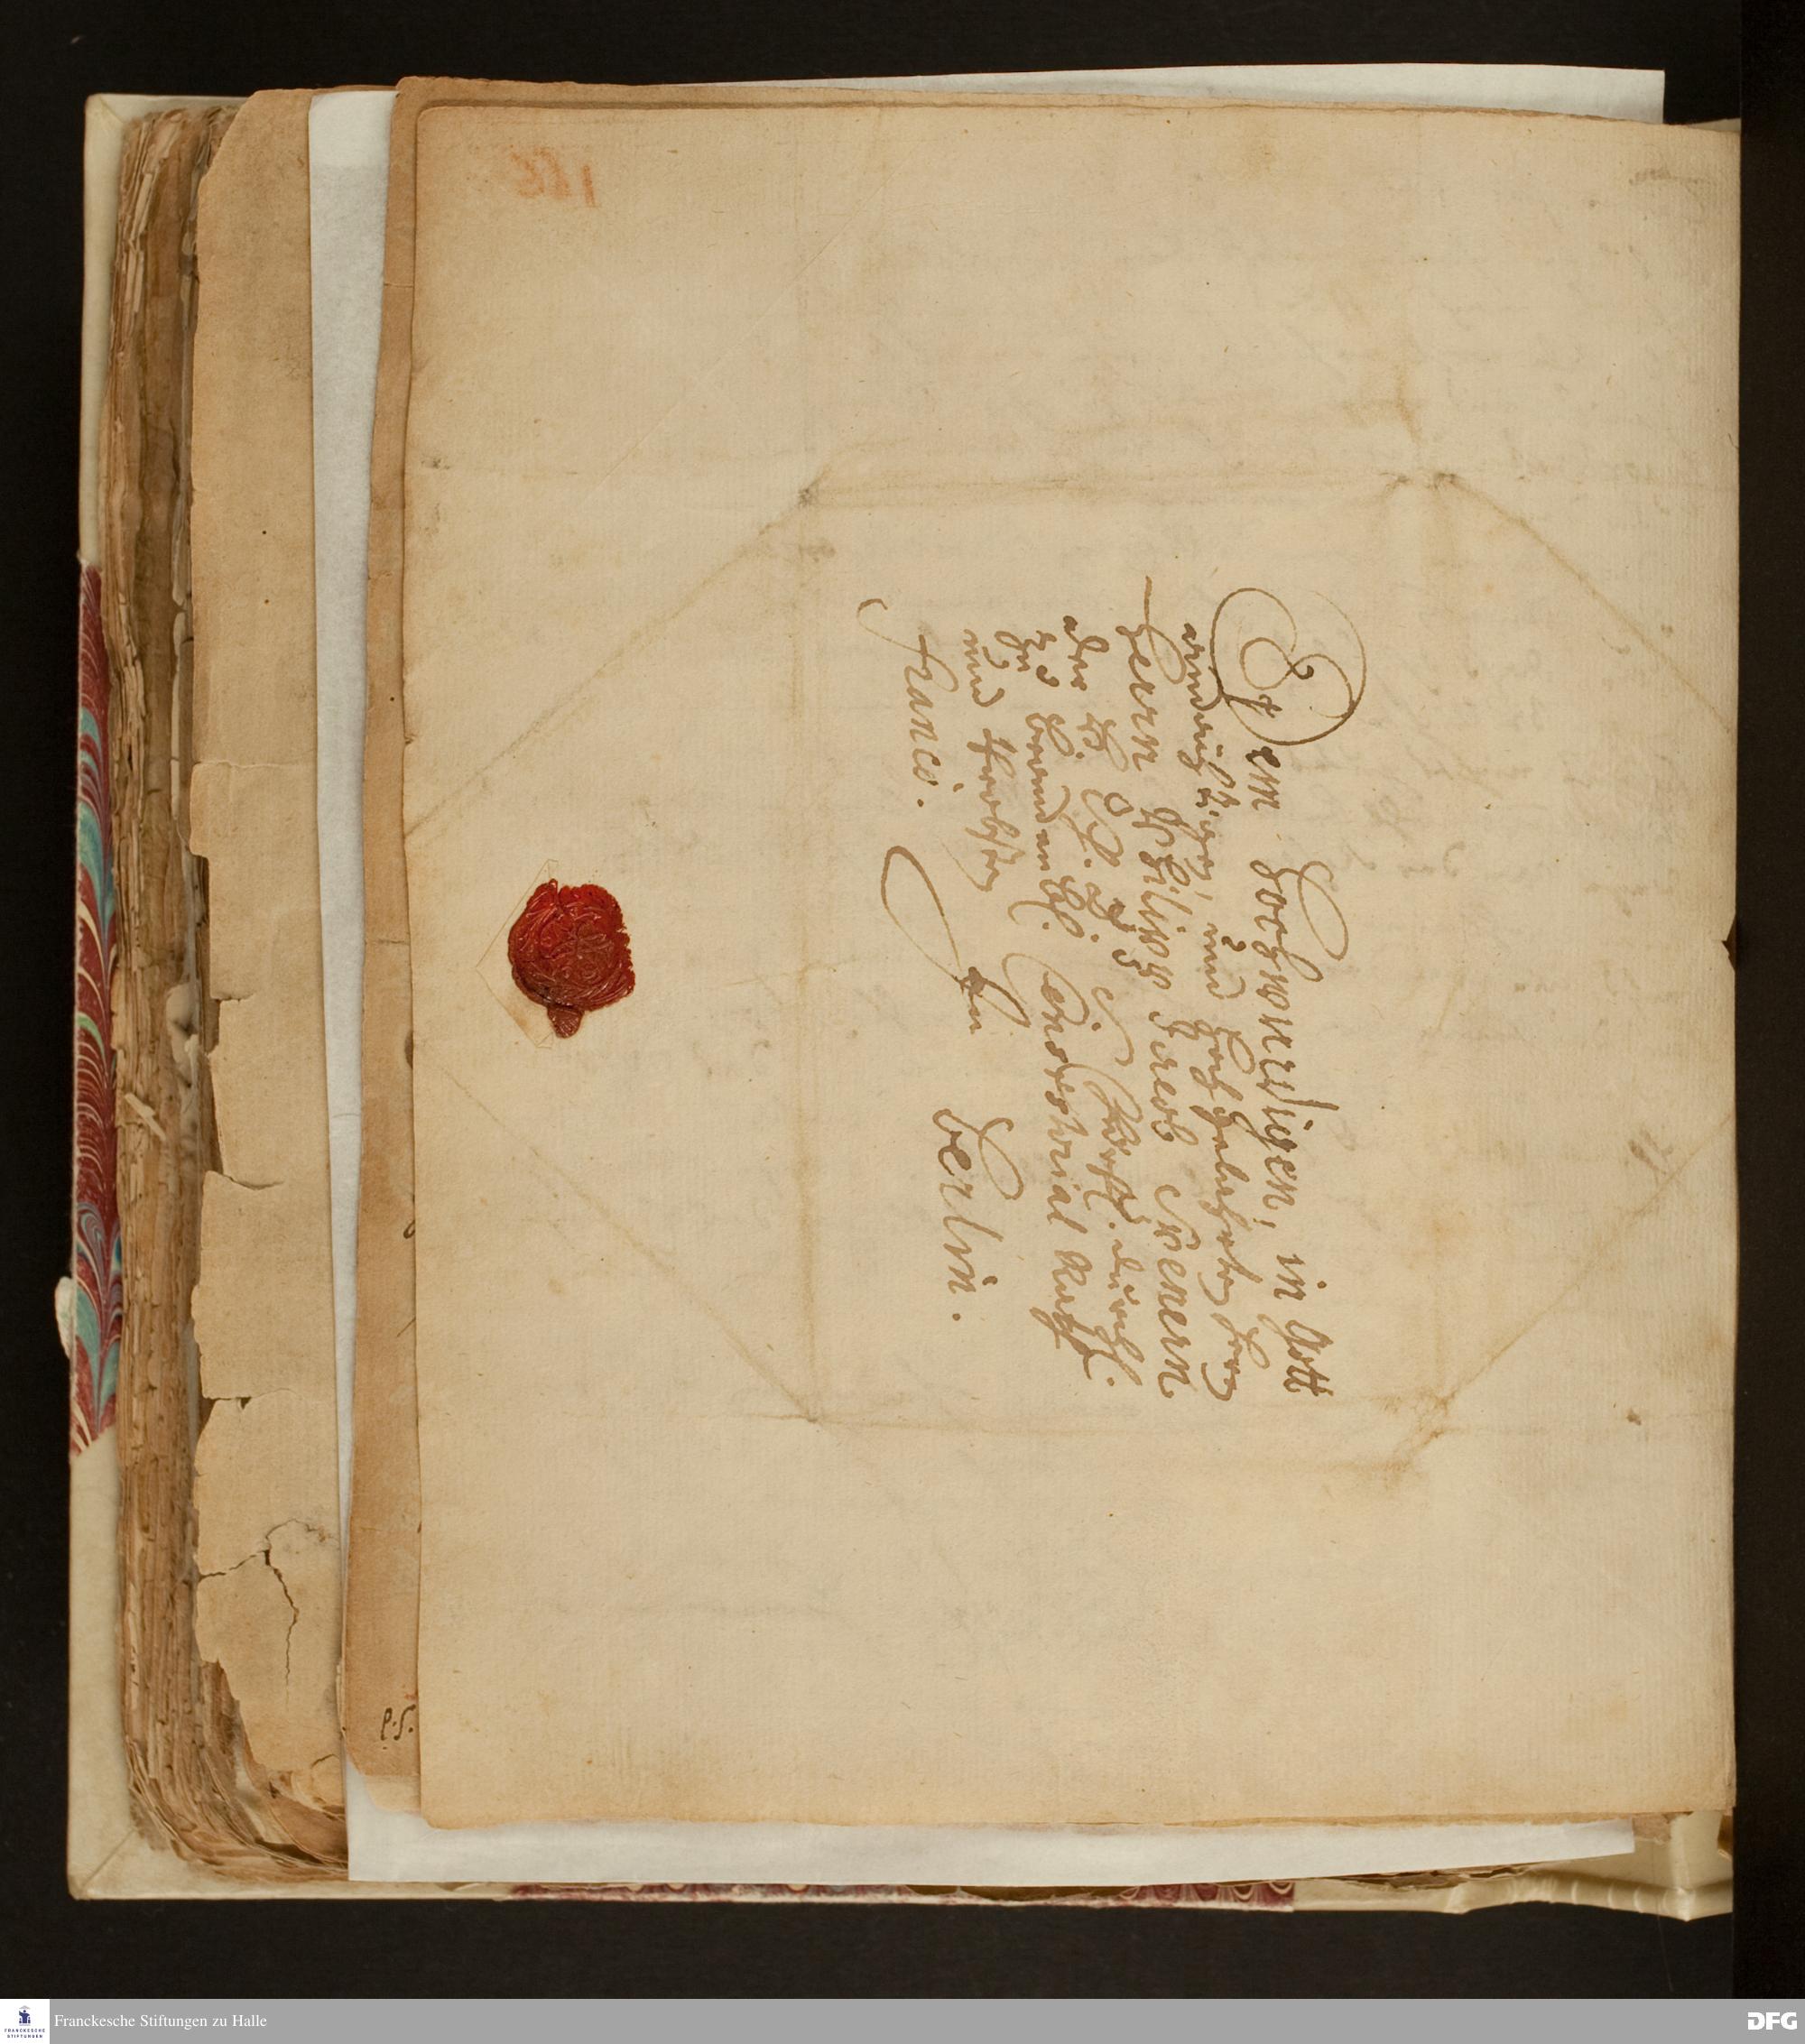 Dem Hochwurdigen, in Gott
andächtigen, und Hochgelahrten Herrn
Herrn Philipp Jacob Spenern
der H. S. D. Churfl. durchl.
zu Brandenb. Consistorial Rath.
und Probsten
franco. In Berlin.
P.S.
Franckesche Stiftungen zu Halle
FRANCKESCHE
STIFTUNGEN
DFG